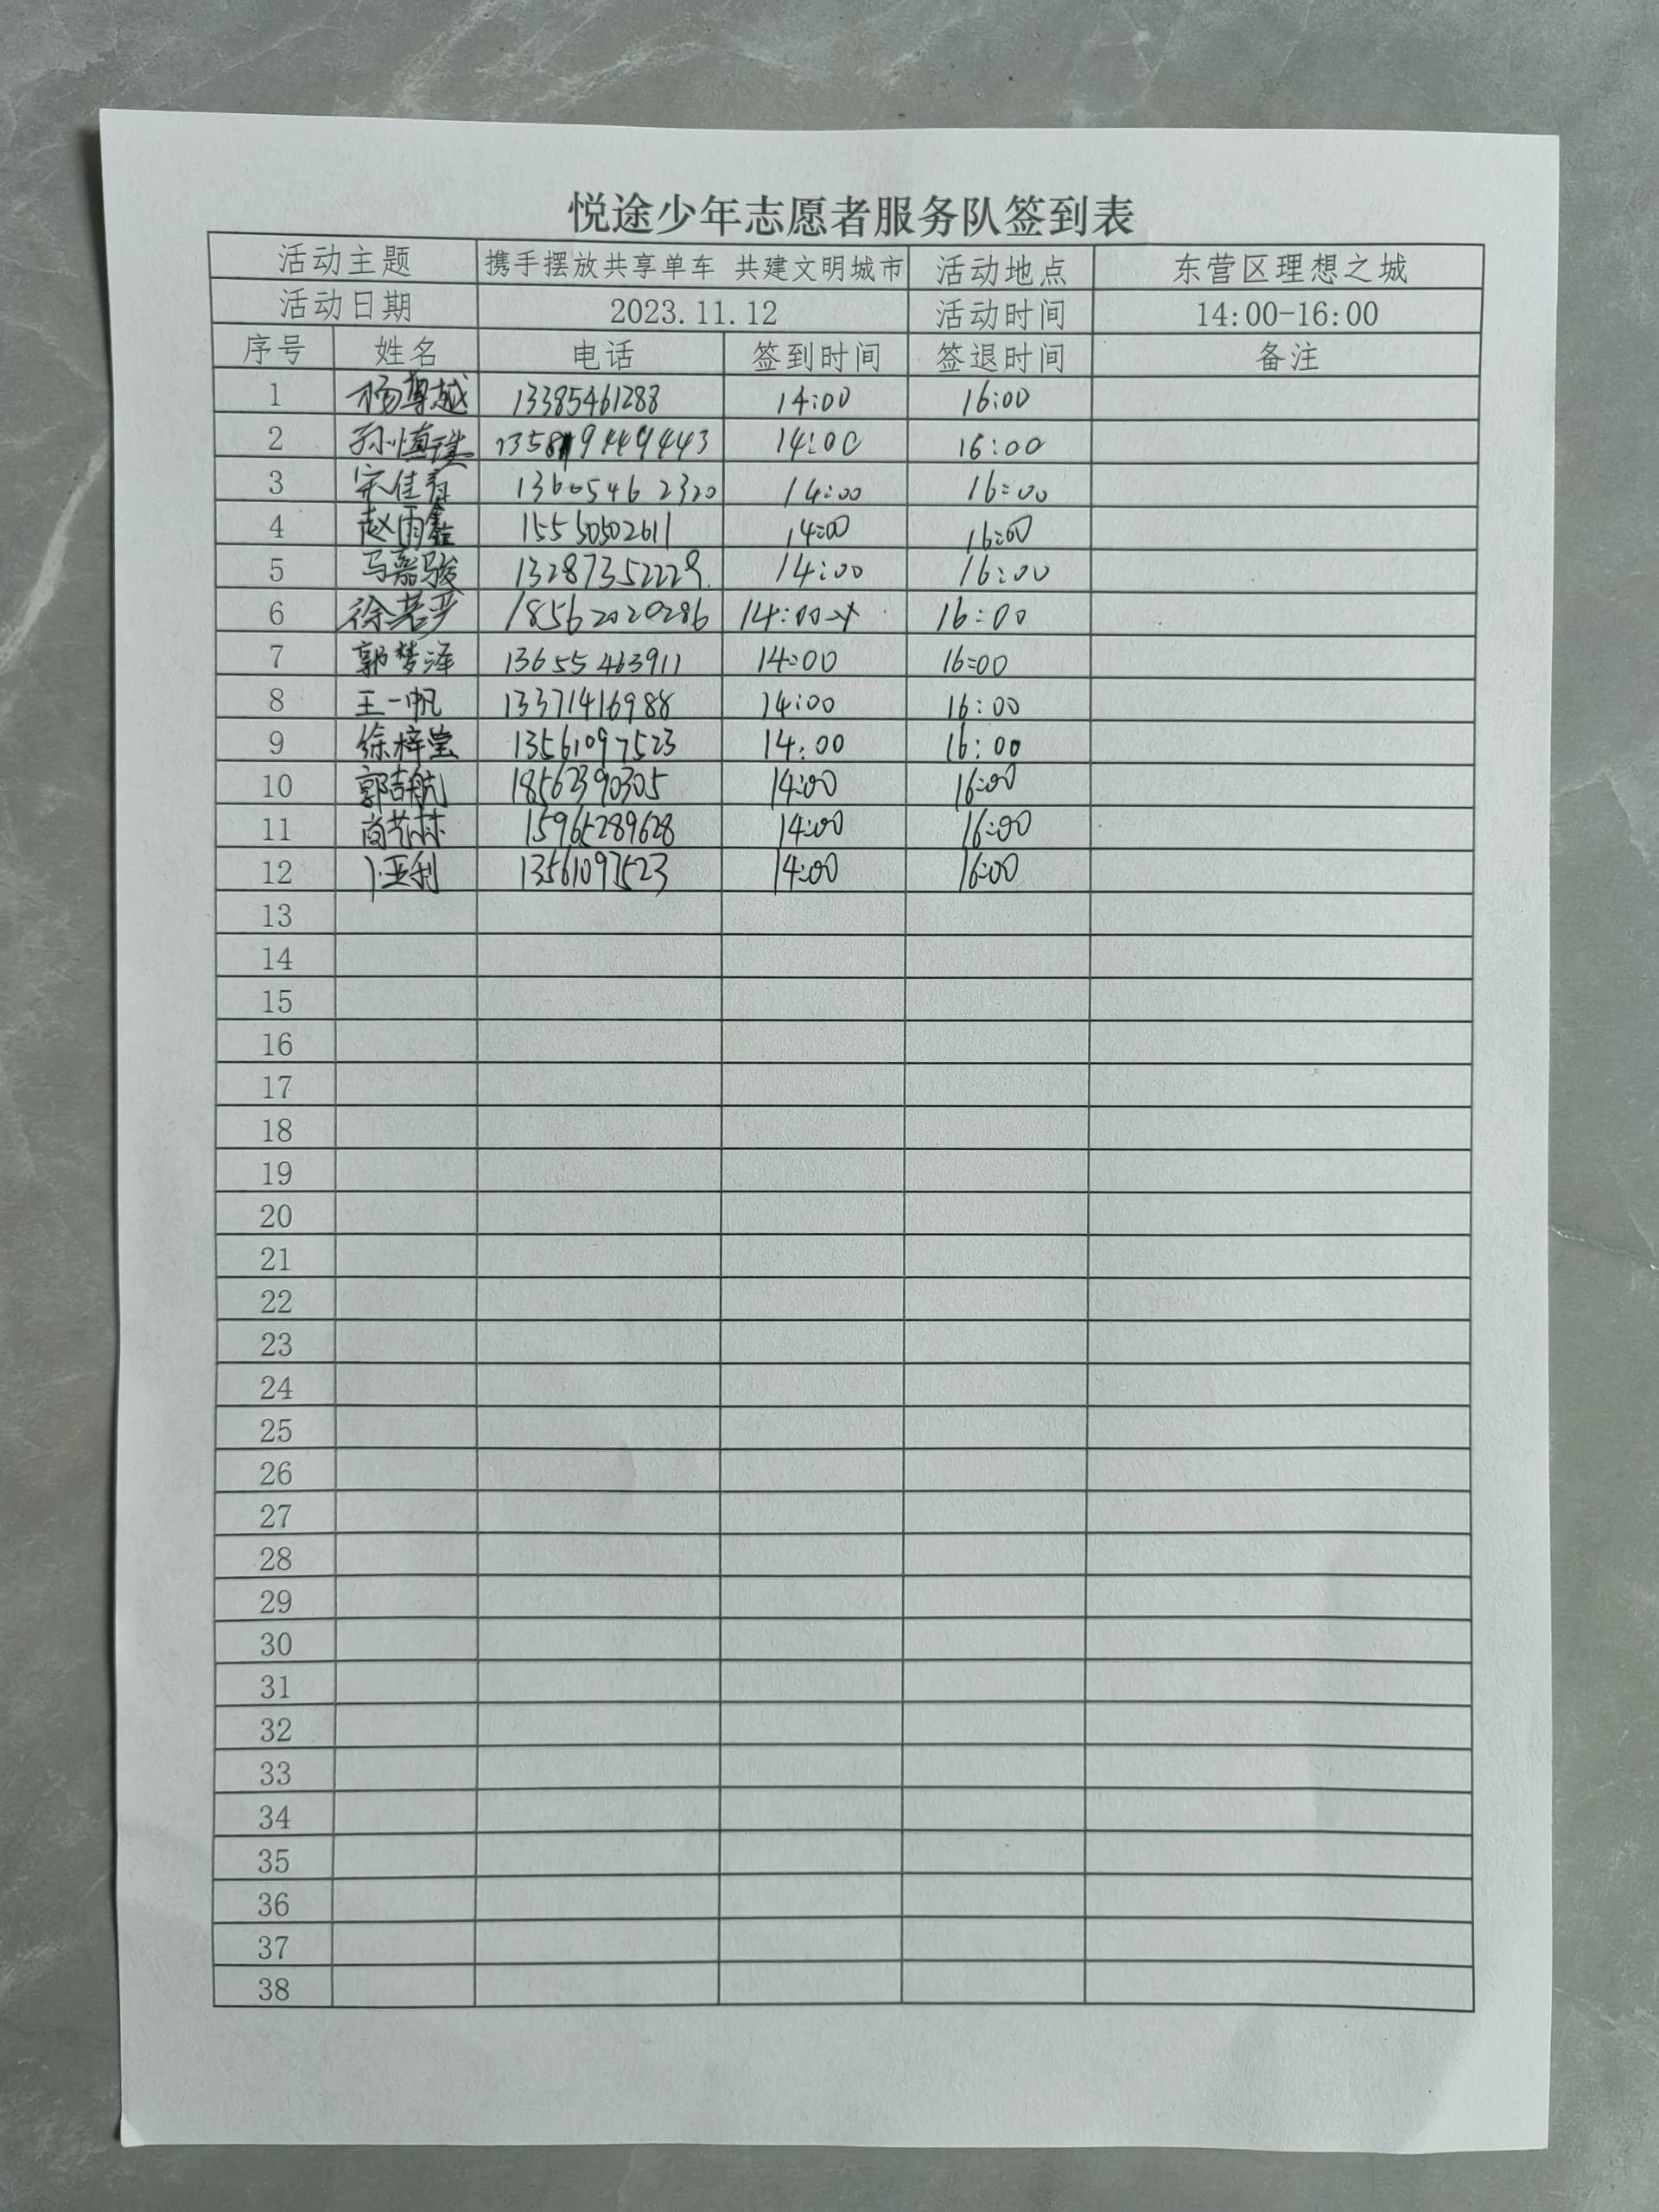 悦途少年志愿者服务队签到表
活动主题 携手摆放共享单车 共建文明城市 活动地点 东营区理想之城
活动日期 2023.11.12 活动时间 14:00-16:00
序号 姓名 电话 签到时间 签退时间 备注
1 杨尊越 13385461288 14:00 16:00
2 14:00 16:00
3 宋佳 13605462320 14:00 16:00
4 赵雨鑫 15550502611 14:00 16:00
5 马嘉骏 13287352229 14:00 16:00
6 徐若 18562020286 14:00 16:00
7 郭梦泽 13655463911 14:00 16:00
8 王一帆 13371416988 14:00 16:00
9 徐梓莹 13561097523 14:00 16:00
10 郭吉航 18562390305 14:00 16:00
11 尚艺林 15965289628 14:00 16:00
12 卜亚利 13561097523 14:00 16:00
13
14
15
16
17
18
19
20
21
22
23
24
25
26
27
28
29
30
31
32
33
34
35
36
37
38